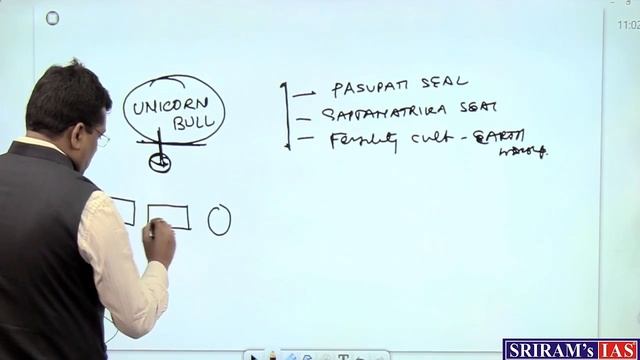 11:02
UNICORN
BULL
PASUPATI SEAL
SAPTAMATRIKA SEAL
Fertility cult - EARTH
SRIRAM's IAS